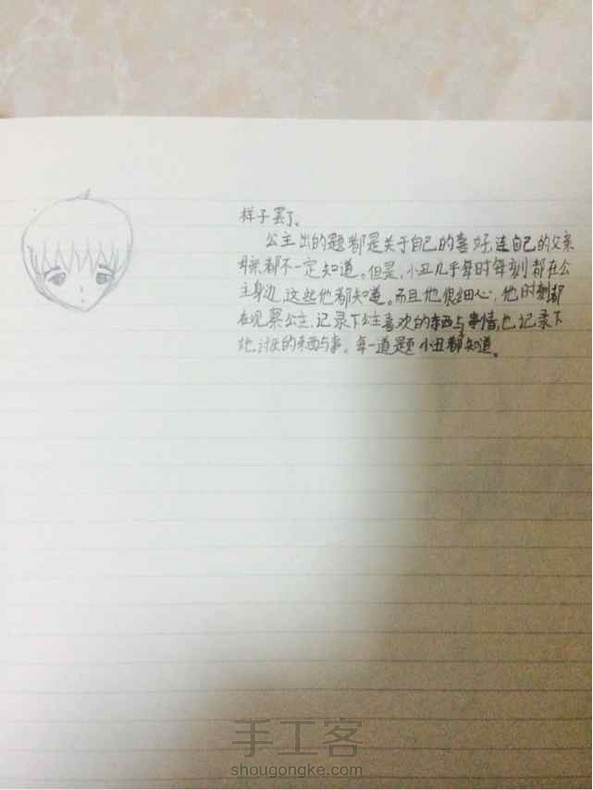 样子罢了。
公主出的题都是关于自己的喜好,连自己的父亲
母亲都不一定知道。但是,小丑几乎每时每刻都在公
主身边,这些他都知道。而且他很细心,他时刻都
在观察公主,记录下公主喜欢的东西与事情,也记录下
她讨厌的东西与事。每一道题小丑都知道。
手工客
shougongke.com